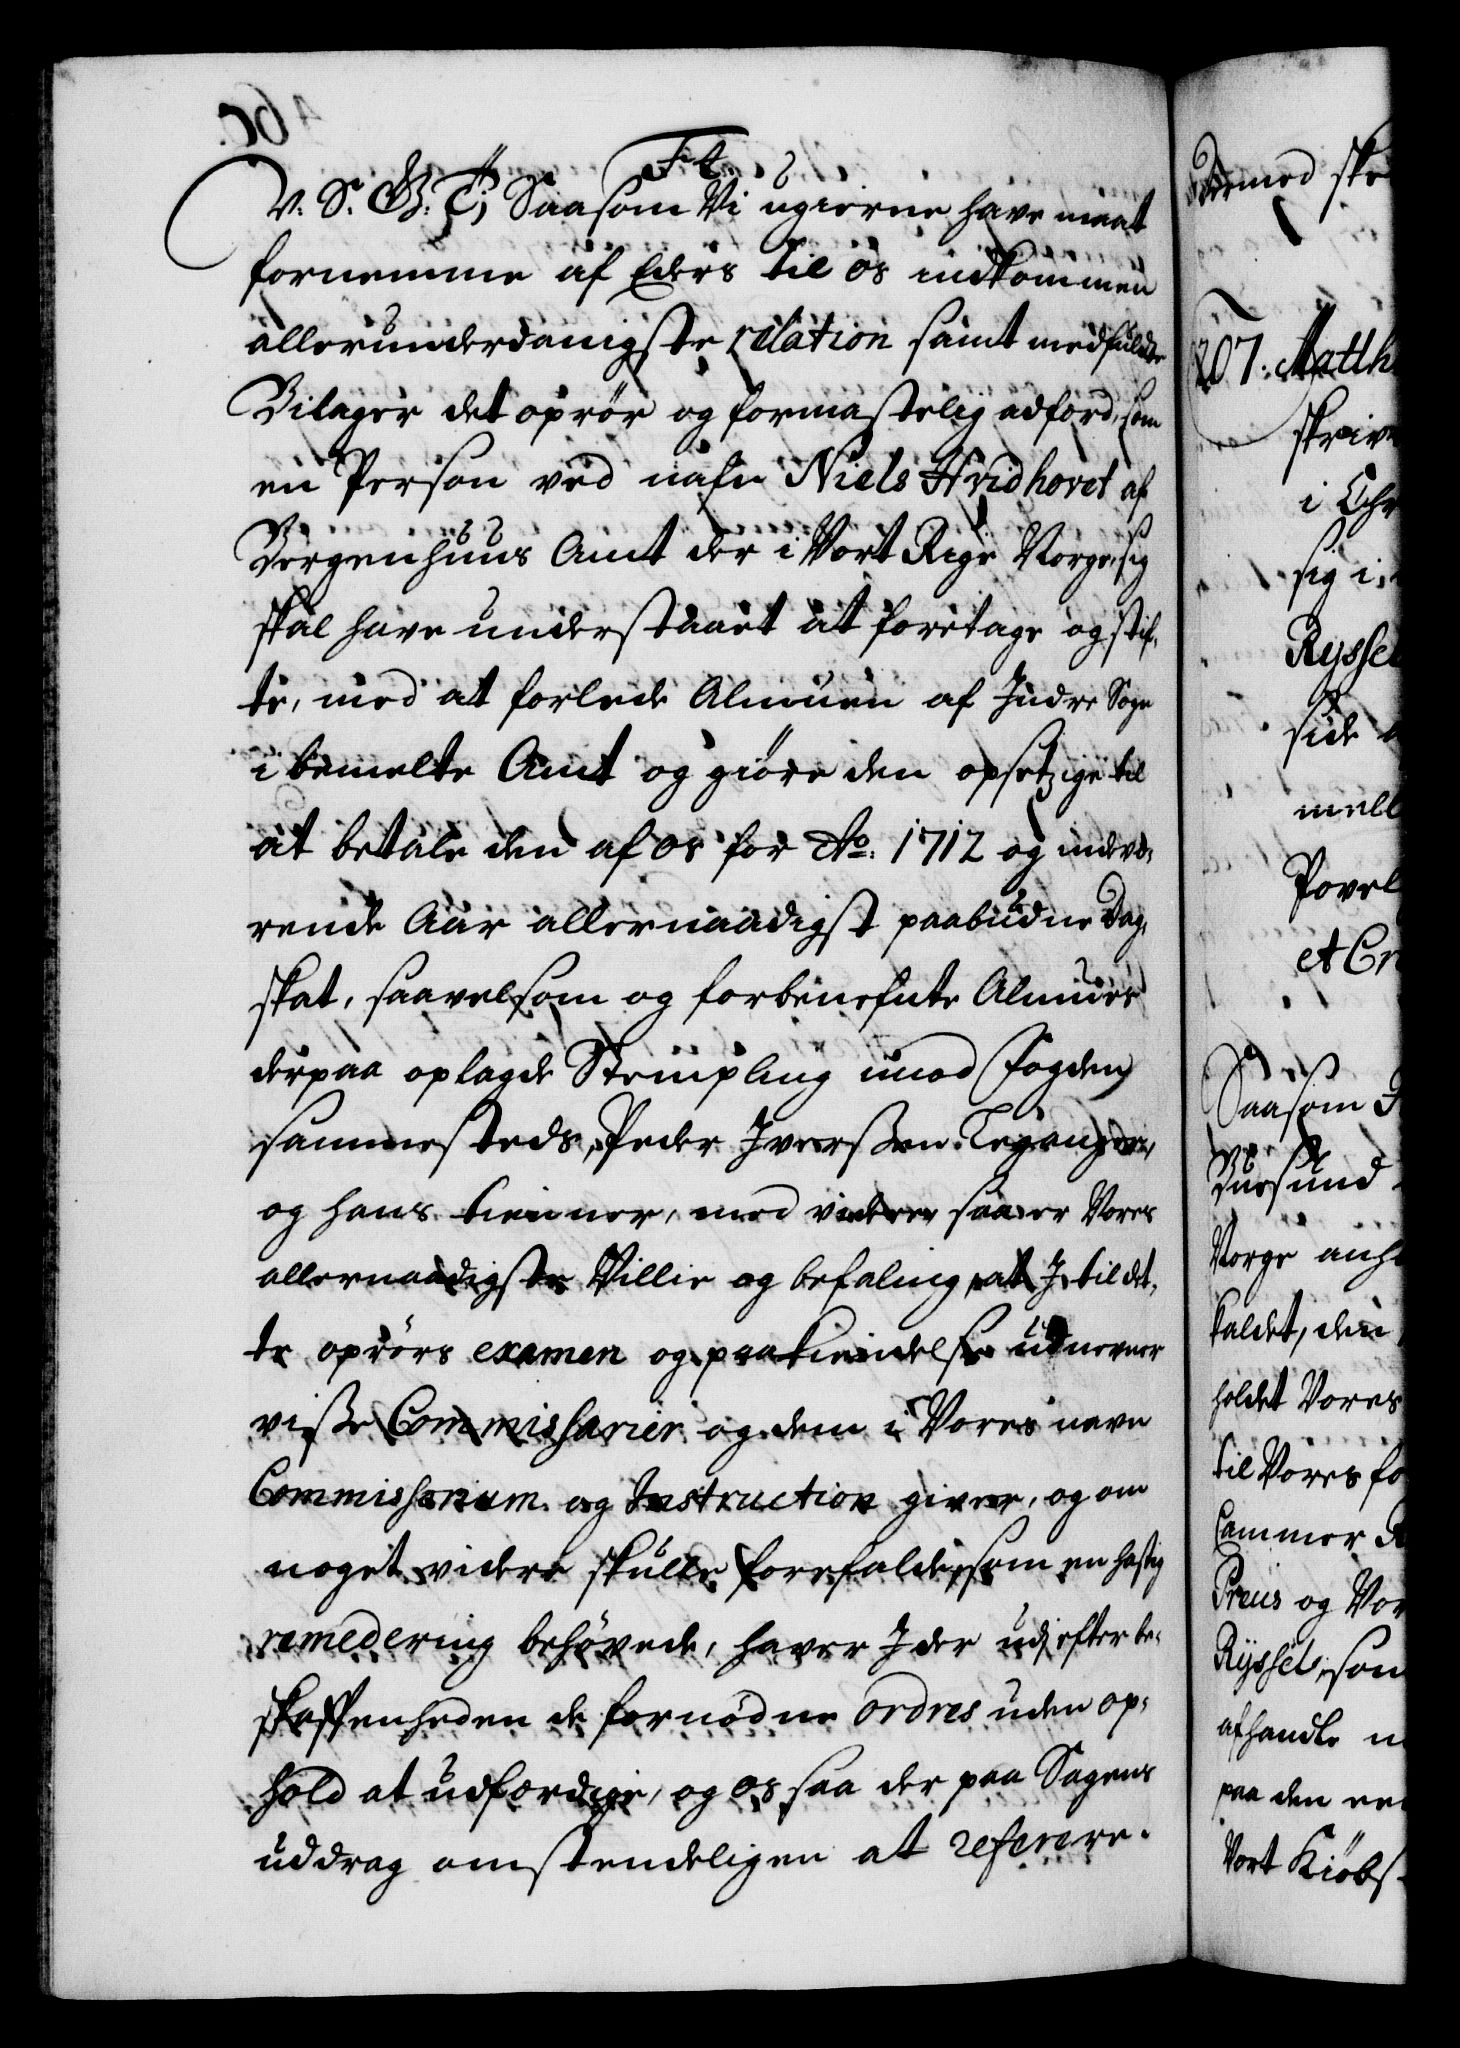 F4.
V. S. G. T; Saasom Vi ugierne have maat
fornemme af Eders til os indkommen
allerunderdanigste relation samt medfulte
Bilager det oprør og formastelig adferd, som
en Person ved nafn Niels Hvidhovet af
Bergenhuus Amt der i Vort Rige Norge, sig
skal have understaaet at foretage og stif-
te, med at forlede Almuen af Indre Sogn
i bemelte Amt og giøre den opsetzige til
at betale den af os for Ao: 1712 og indevæ-
rende Aar allernaadigst paabudne Dag-
skat, saavelsom og forbenefnte Almues
derpaa oplagde Stempling imod Fogden
sammesteds, Peder Iverssøn Leganger,
og hans tienner, med videre saa er Vores
allernaadigste Villie og befaling, at I til det-
te oprørs examen og paakiendelse udnevner
visse Commissarier og dem i Vores navn
Commissorium og Instruction giver, og om
noget videre skulle forefalde, som en hastig
remedering behøvede, haver I der udj efter be-
skaffenheden de fornødne ordres uden op-
hold at udfærdige, og os saa der paa Sagens
uddrag omstendeligen at referere.
Dermed ske
207. Matth
skriv
i Chr
sig i
Ryssel
side
mell
Povel
et Cr
Saasom
Buesund
Norge anh
kaldet, den
holdet Vores
til Vores fo
Cammer R
Preus og Vor
Ryssel, som
afhandle
paa den een
Vort Kiøbs